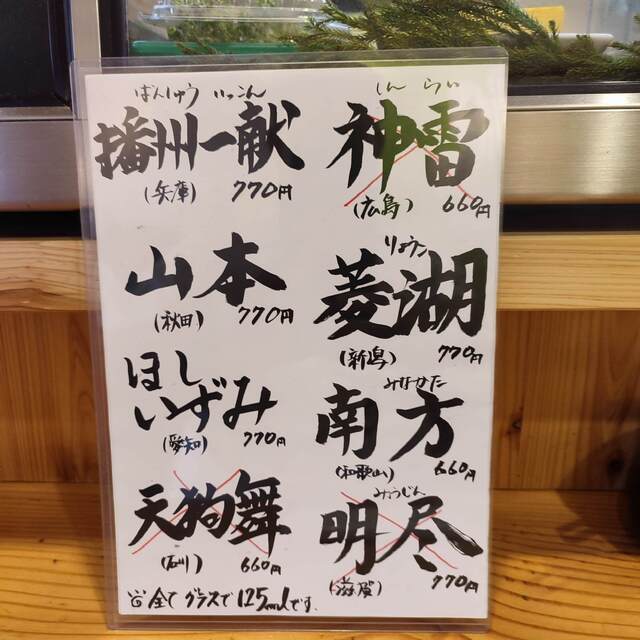 ばんしゅう いっこん
播州一献
(兵庫) 770円
しん らい
神雷
(広島) 660円
山本
(秋田) 770円
りょうこ
菱湖
(新潟) 770円
ほし
いずみ
(愛知) 770円
みなかた
南方
(和歌山) 660円
天狗舞
(石川) 660円
みょうじん
明尽
(滋賀) 770円
全て グラスで125mlです.